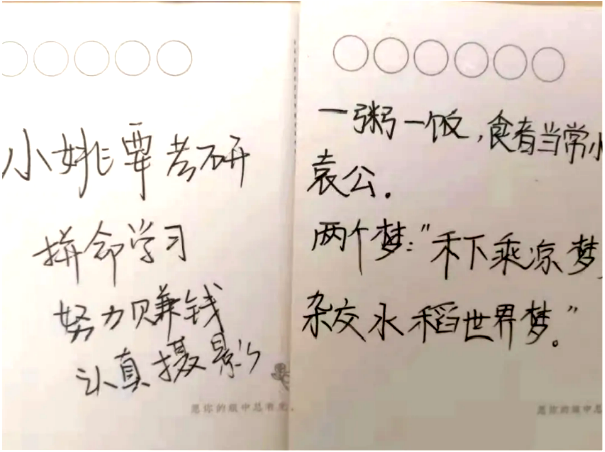 小姚要考研
拼命学习
努力赚钱
认真摄影
愿你的眼中总有光
一粥一饭，食者当常
袁公．
两个梦：“禾下乘凉梦
杂交水稻世界梦。”
愿你的眼中总